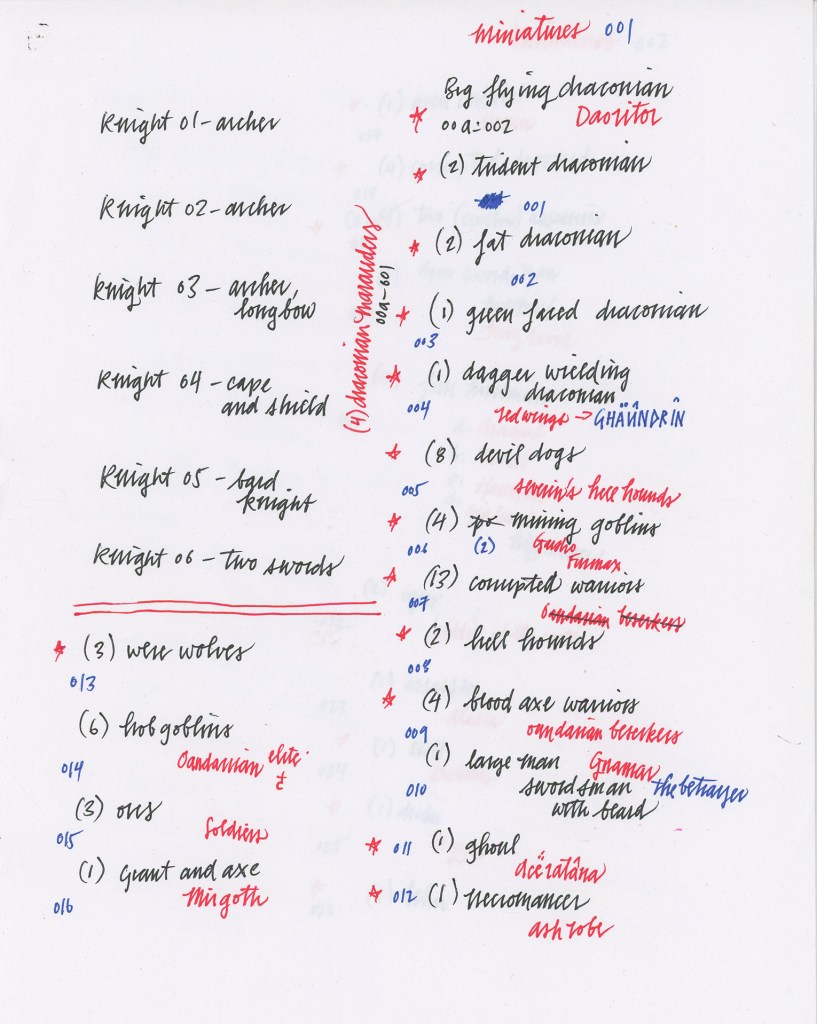 miniatures 001
Knight 01 - archer
Knight 02 - archer
Knight 03 - archer,
longbow
Knight 04 - cape
and shield
Knight 05 - bard
knight
Knight 06 - two swords
(3) were wolves
013
(6) hobgoblins
014 Oandarian elite
(3) orcs
015 Soldiers
(1) giant and axe
016 Mirgoth
(4) draconian marauders
00a-001
Big flying draconian
00a-002 Daoritor
(2) trident draconian
001
(2) fat draconian
002
(1) green faced draconian
003
(1) dagger wielding
draconian
004 red wings → GHÄÜNDRÎN
(8) devil dogs
005 severin's hell hounds
(4) mining goblins
006 (2)
(13) corrupted warriors
007 Oandarian beserkers
(2) hell hounds
008
(4) blood axe warriors
009 oandarian beserkers
(1) large man Gnamar
010 swordsman the betrayer
with beard
011 (1) ghoul
acëratâna
012 (1) necromancer
ash robe